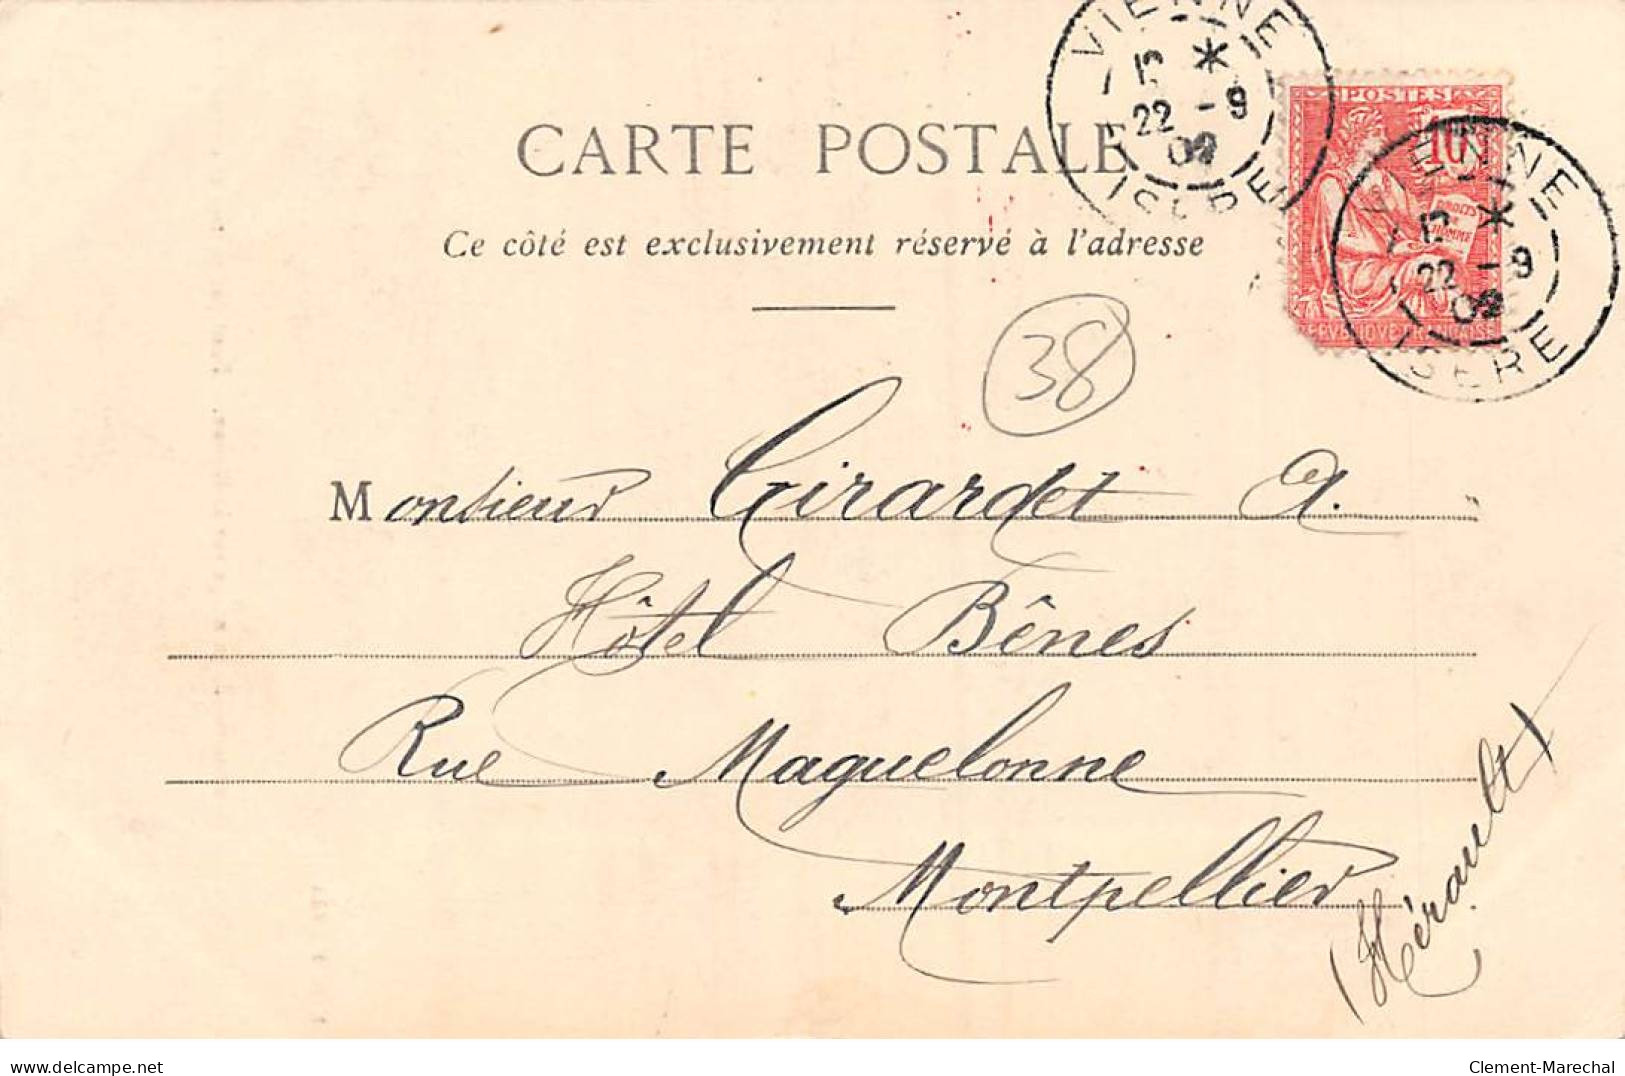 VIENNE
* 
22 - 9
02
ISERE
POSTES
10
DROITS
DE
L'HOMME
REPUBLIQUE FRANÇAISE
VIENNE
*
22 - 9
02
ISERE
CARTE POSTALE
Ce côté est exclusivement réservé à l'adresse
38
Monsieur Girardet A.
Hôtel Bênes
Rue Maguelonne
Montpellier
(Hérault)
www.delcampe.net
Clement-Marechal